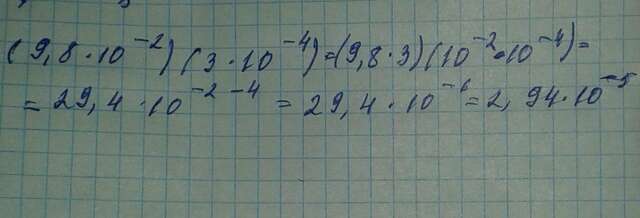 (9,8·10⁻²)(3·10⁻⁴)=(9,8·3)(10⁻²·10⁻⁴)=
=29,4·10⁻²⁻⁴=29,4·10⁻⁶=2,94·10⁻⁵